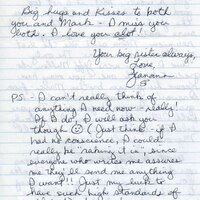 Big hugs and Kisses to both
you and Mark - I miss you
both. I love you alot!
Your big sister always,
Love,
PS. - I can't really think of
anything I need now - really!
If I do, I will ask you
though ☺ (Just think - if I
had no conscience, I could
really be "raking it in", since
everyone who writes me assures
me they'll send me anything
I want!! Just my luck to
have such high standards of